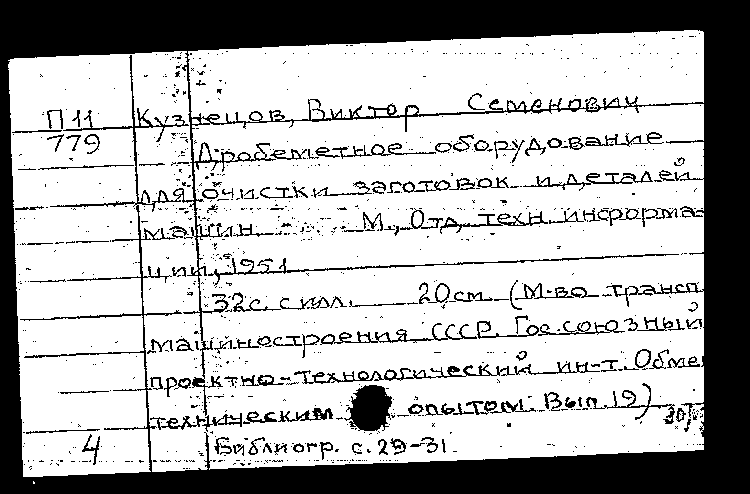 П11 Кузнецов, Виктор Семенович
779 Дробеметное оборудование
для очистки заготовок и деталей
машин. М., Отд. техн. информа-
ции, 1951.
32с. с илл. 20см. (М-во трансп.
машиностроения СССР. Гос. союзный
проектно-технологический ин-т. Обмен
техническим опытом. Вып. 19)
4 Библиогр. с. 29-31.